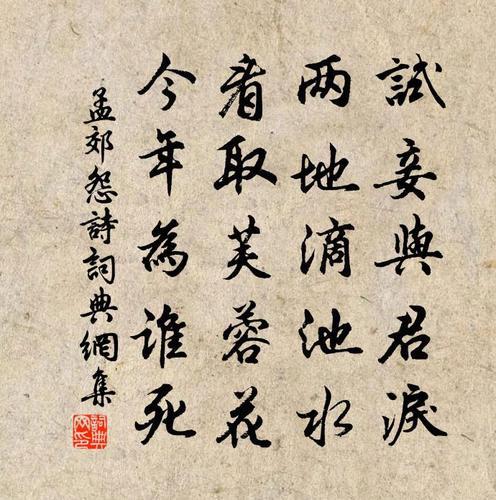 試妾與君淚
两地滴池水
看取芙蓉花
今年為誰死
孟郊怨詩詞典網集
詞典網印